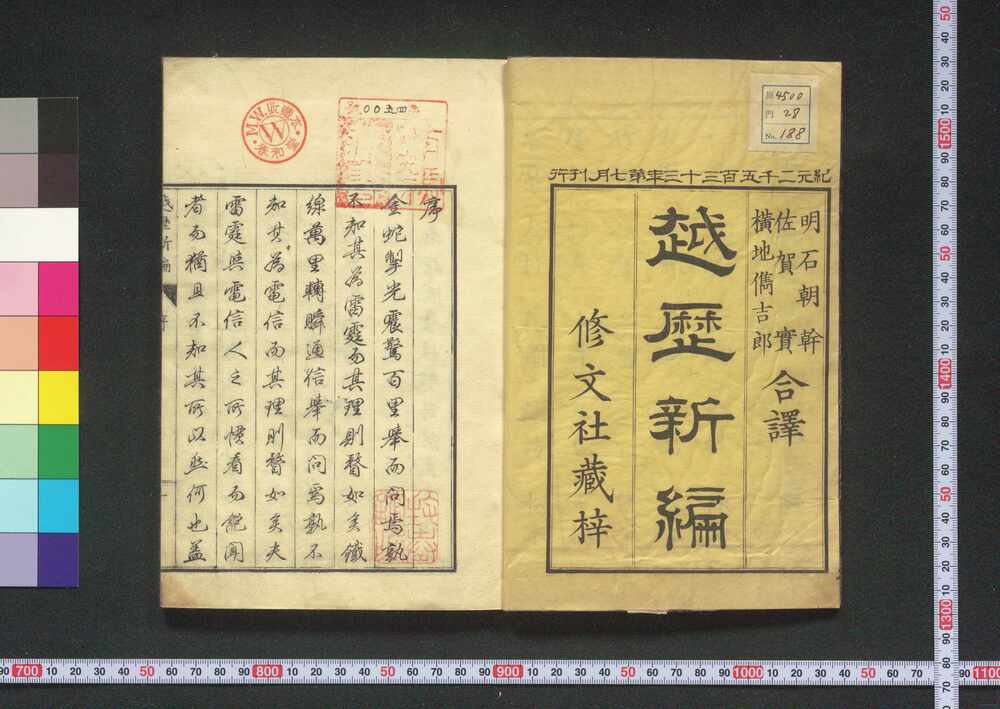 紀元二千五百三十三年第七月刊行
明石朝幹
佐賀實
横地儁吉郎
合譯
越歴新編
修文社藏梓
4500
門 28
No. 188
四五00
M.W.
W
序
金蛇掣光震驚百里舉而問焉孰
不知其為雷霆而其理則瞀如矣鐵
線萬里轉瞬通信舉而問焉孰不
知其為電信而其理則瞀如矣夫
雷霆與電信人之所慣看而飽聞
者而猶且不知其所以然何也蓋